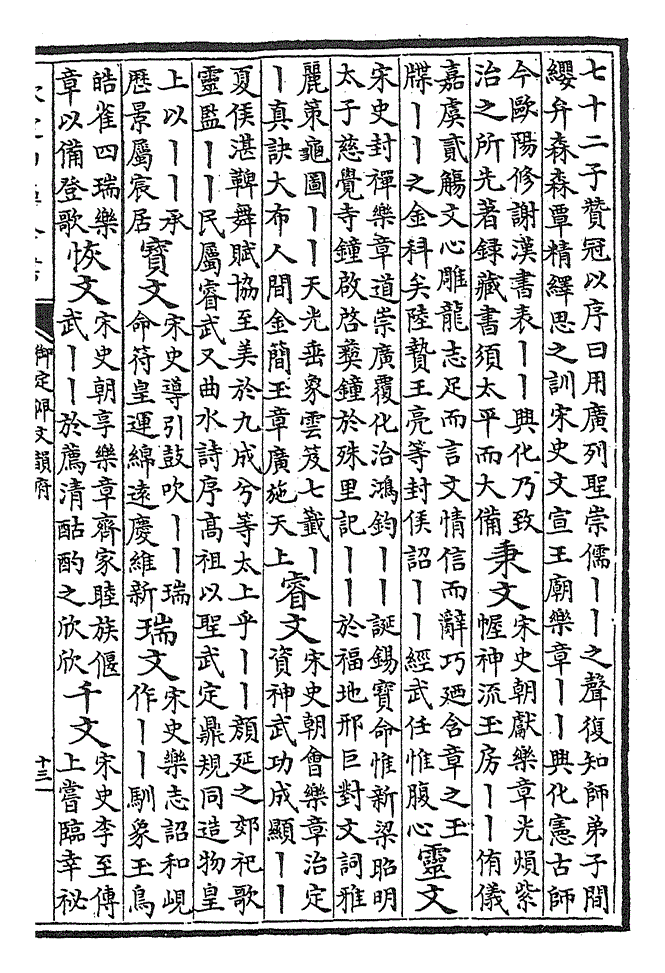 七十二子贊冠以序曰用廣列聖崇儒丨丨之聲復知師弟子間
纓弁森森覃精繹思之訓宋史文宣王廟樂章丨丨興化憲古師
今歐陽修謝漢書表丨丨興化乃致
治之所先著録藏書須太平而大備
秉文
宋史朝獻樂章光煩紫
幄神流玉房丨丨侑儀
嘉虞貳觴文心雕龍志足而言文情信而辭巧廼含章之玉
牒丨丨之金科矣陸贄王亮等封侯詔丨丨經武任惟腹心
靈文
宋史封禪樂章道崇廣覆化洽鴻鈞丨丨誕錫寶命惟新梁昭明
太子慈覺寺鐘啟啓藂鐘於殊里記丨丨於福地邢巨對文詞雅
麗策龜圖丨丨天光垂象雲笈七籤丨
丨真訣大布人間金簡玉章廣施天上
睿文
宋史朝會樂章治定
資神武功成顯丨丨
夏侯湛鞞舞賦協至美於九成兮等太上乎丨丨顔延之郊祀歌
靈監丨丨民屬睿武又曲水詩序高祖以聖武定鼎規同造物皇
上以丨丨承
歴景屬宸居
寳文
宋史導引鼓吹丨丨瑞
命符皇運綿遠慶維新
瑞文
宋史樂志詔和峴
作丨丨馴象玉鳥
皓雀四瑞樂
章以備登歌
恢文
宋史朝享樂章齊家睦族偃
武丨丨於薦清酤酌之欣欣
千文
宋史李至傳
上嘗臨幸祕
御定佩文韻府
十三